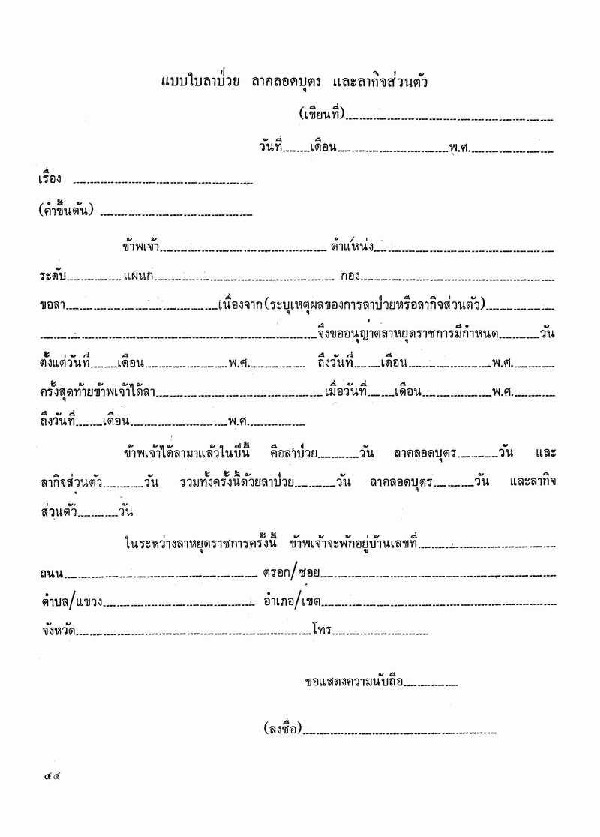 แบบใบลาป่วย ลาคลอดบุตร และลากิจส่วนตัว
(เขียนที่)
วันที่ เดือน พ.ศ.
เรื่อง
(คำขึ้นต้น)
ข้าพเจ้า ตำแหน่ง
ระดับ แผนก กอง
ขอลา เนื่องจาก(ระบุเหตุผลของการลาป่วยหรือลากิจส่วนตัว)
จึงขออนุญาตลาหยุดราชการมีกำหนด วัน
ตั้งแต่วันที่ เดือน พ.ศ. ถึงวันที่ เดือน พ.ศ.
ครั้งสุดท้ายข้าพเจ้าได้ลา เมื่อวันที่ เดือน พ.ศ.
ถึงวันที่ เดือน พ.ศ.
ข้าพเจ้าได้ลามาแล้วในปีนี้ คือลาป่วย วัน ลาคลอดบุตร วัน และ
ลากิจส่วนตัว วัน รวมทั้งครั้งนี้ด้วยลาป่วย วัน ลาคลอดบุตร วัน และลากิจ
ส่วนตัว วัน
ในระหว่างลาหยุดราชการครั้งนี้ ข้าพเจ้าจะพักอยู่บ้านเลขที่
ถนน ตรอก/ซอย
ตำบล/แขวง อำเภอ/เขต
จังหวัด โทร
ขอแสดงความนับถือ
(ลงชื่อ)